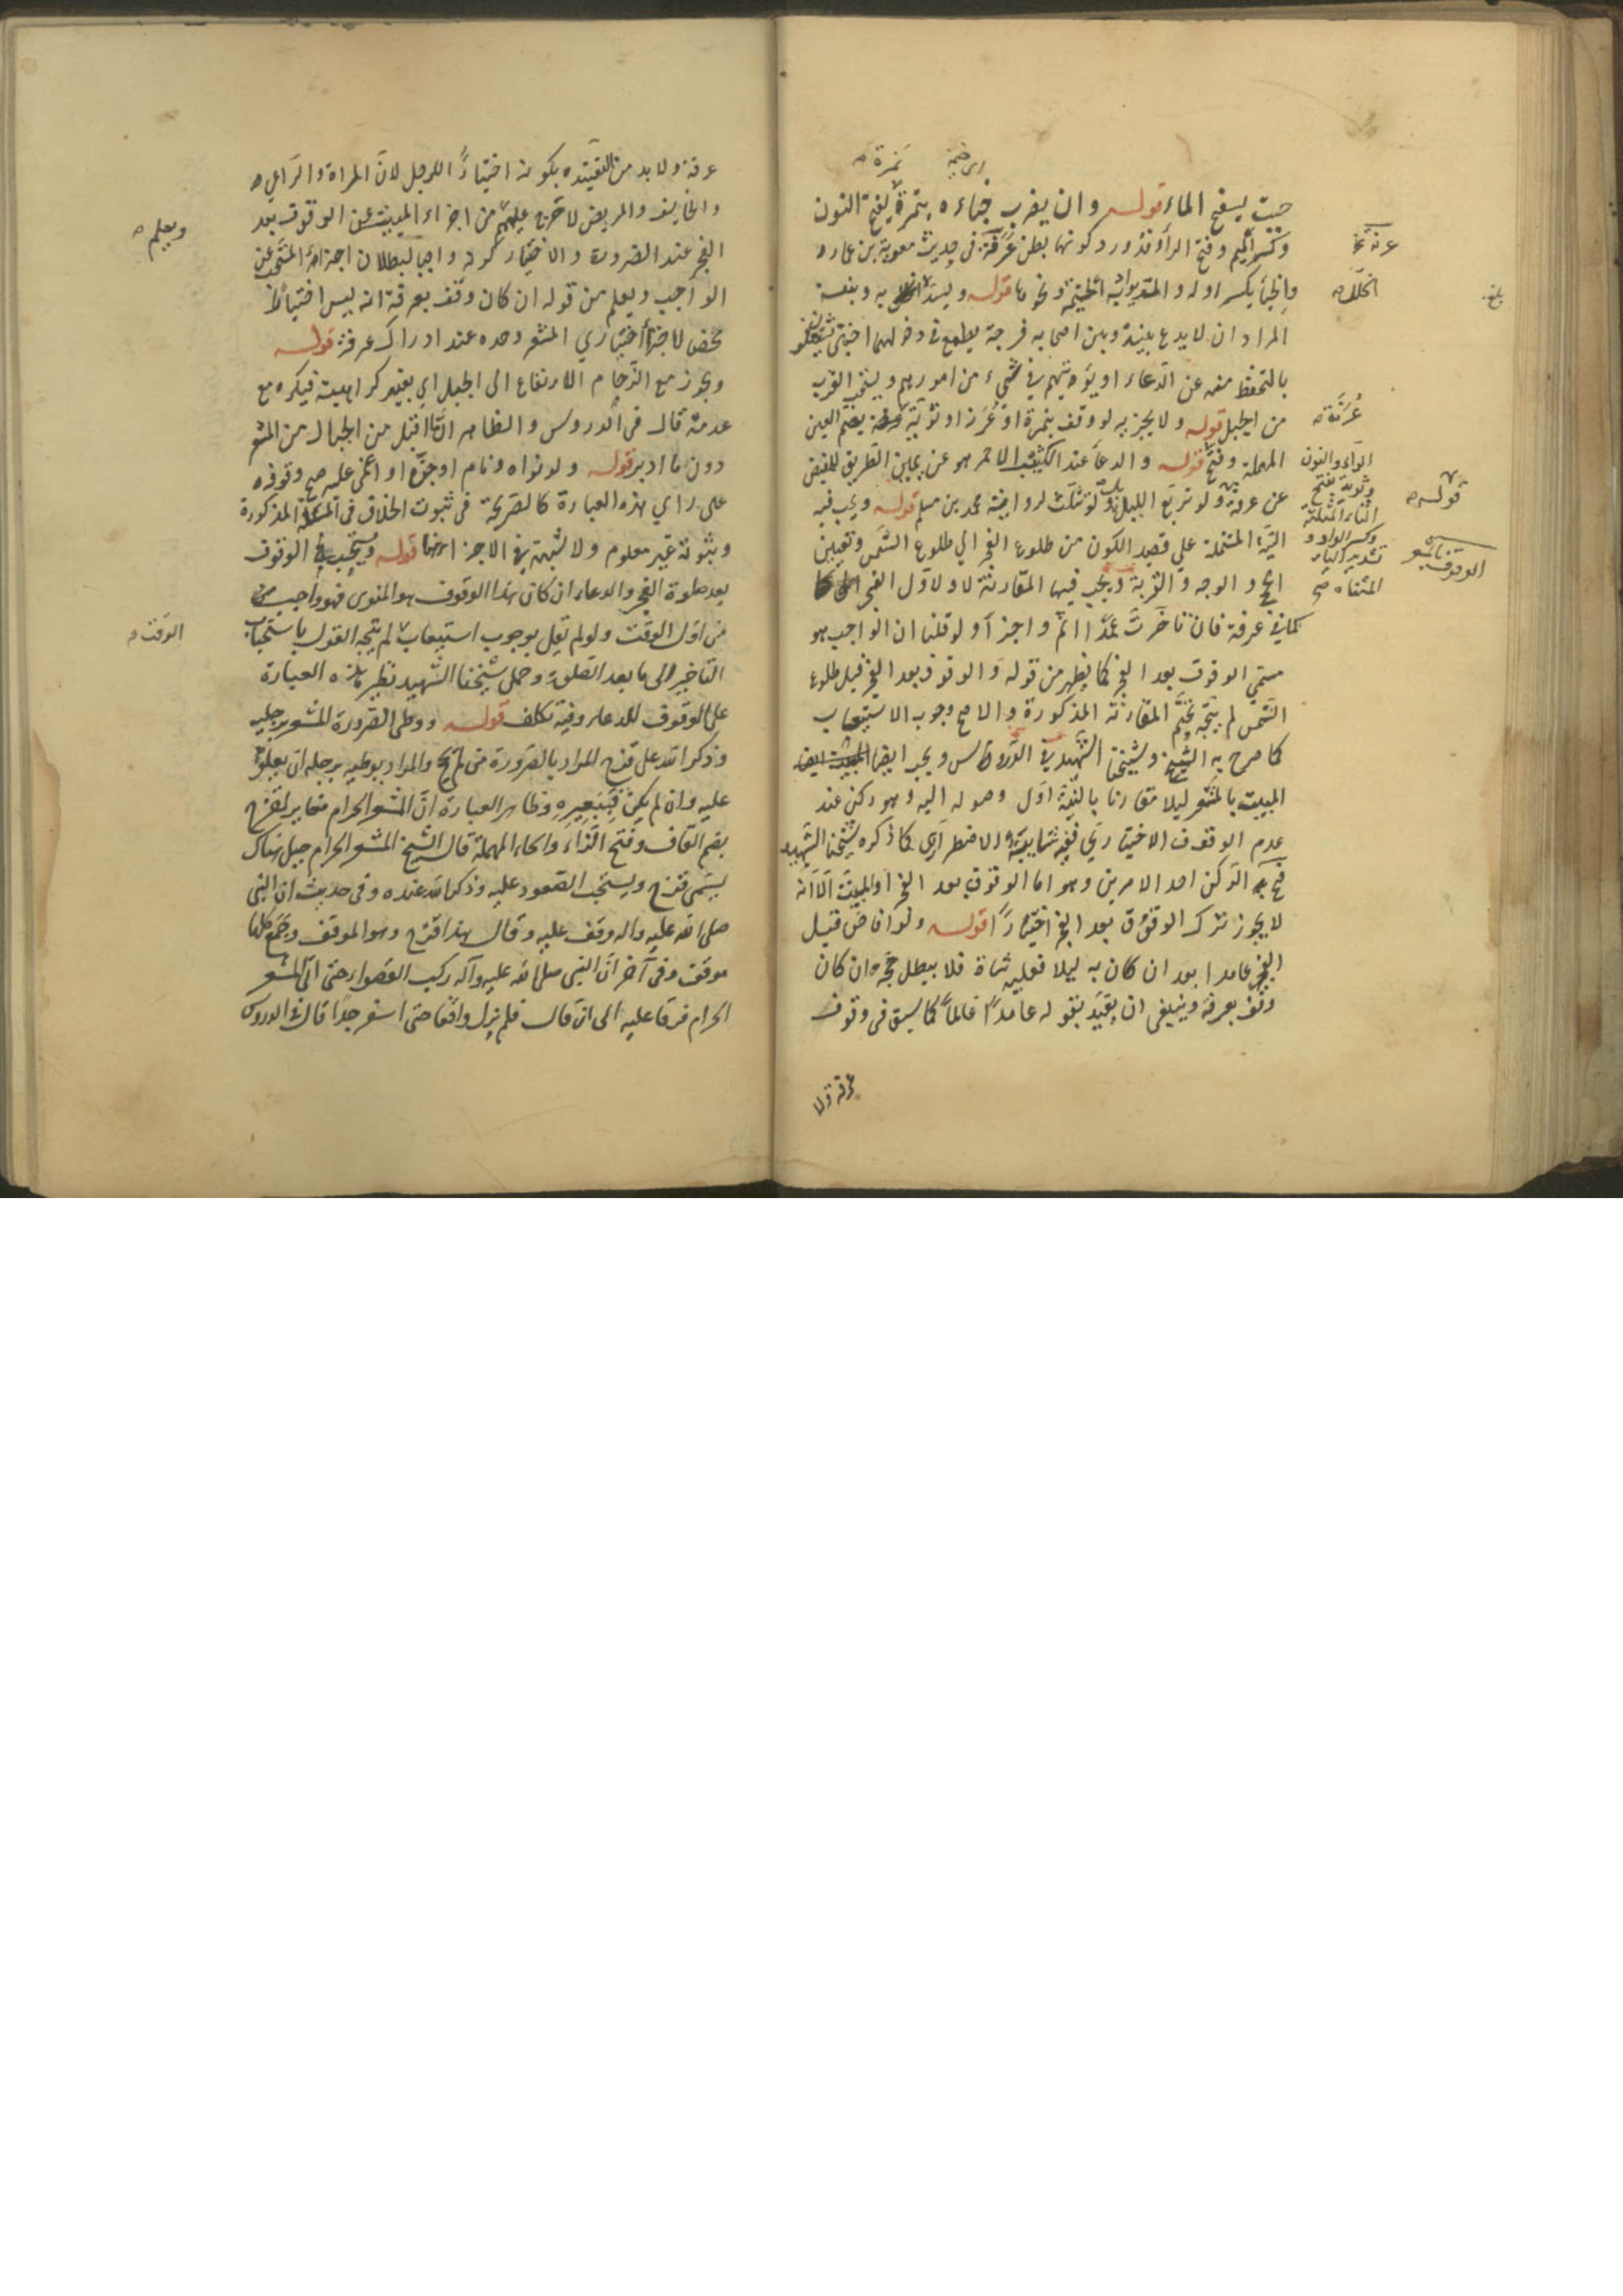 حيث يسفح الماء قوله وان يضرب خباءه بنمرة بفتح النون
وكسر الميم وفتح الراء وقد ورد كونها بطن عرنة في حديث معوية بن عمار
والخباء بكسر اوله والمتد به الخيمة ونحوها قوله وليسد الخلل به وبنفسه
المراد ان لا يدع بينه وبين اصحابه فرجة يطمع في دخولها اجنبي فيشتغلون
بالتحفظ منه عن الدعاء او يؤذيهم في شيء من امورهم ويستحب القرب
من الجبل قوله ولا يجزيه لو وقف بنمرة او عرنة او ثوية بضم العين
المهملة وفتح قوله والدعاء عند الكثيب الاحمر هو عن يمين الطريق للمفيض
عن عرفة قوله ولو تربع الليل بل لو تثلث لرواية محمد بن مسلم قوله ويجب فيه
النية المشتملة على قصد الكون من طلوع الفجر الي طلوع الشمس وتعيين
الحج والوجه والقربة ويجب فيها المقارنة لاول الفجر
كما في عرفة فان تأخرت عمدا اثم واجزأ ولو قلنا ان الواجب هو
مسمى الوقوف بعد الفجر كما يظهر من قوله والوقوف بعد الفجر قبل طلوع
الشمس لم يتجه تحتم المقارنة المذكورة والاصح وجوب الاستيعاب
كما صرح به الشيخ وشيخنا الشهيد في الدروس ويجب ايضا
المبيت بالمشعر ليلا مقارنا بالنية اول وصوله اليه وهو ركن عند
عدم الوقوف الاختياري ففيه شايبة الاضطراري كما ذكره شيخنا الشهيد
فح الركن احد الامرين وهو اما الوقوف بعد الفجر او المبيت الا انه
لا يجوز ترك الوقوف بعد الفجر اختيارا قوله ولو افاض قبل
الفجر عامدا بعد ان كان به ليلا فعليه شاة فلا يبطل حجه ان كان
وقف بعرفة وينبغي ان يقيد بقوله عامدا عالما كما سبق في وقوف
عرفة ولا
نمرة
عرنة
الخلل
بلغ
عرنة
الراء والنون
وثوية بفتح
الثاء المثلثة
وكسر الواو و
تشديد الياء
المثناة صح
قوله
الوقوف بالمشعر
عرفة ولا بد من التقييد بكونه اختيارا للرجل لان المراة والراعي
والخايف والمريض لا حرج عليهم من اجزاء المبيت عن الوقوف بعد
الفجر عند الضرورة والاختيار كونه واجبا لبطلان اجزاء المستحب عن
الواجب ويعلم من قوله ان كان وقف بعرفة انه ليس اختياريا
محض لاجزأ اختياري المشعر وحده عند ادراك عرفة قوله
ويجوز مع الزحام الارتفاع الى الجبل اي بغير كراهية فيكره مع
عدمه قال في الدروس والظاهر ان ما اقبل من الجبال من المشعر
دون ما ادبر قوله ولو نواه ونام او جن او اغمي عليه صح وقوفه
على راي هذه العبارة كالصريحة في ثبوت الخلاف في المسئلة المذكورة
وثبوته غير معلوم ولا شبهة في الاجزاء قوله ويستحب الوقوف
بعد صلوة الفجر والدعاء ان كان هذا الوقوف هو المنوي فهو واجب من
من اول الوقت ولو لم نقل بوجوب استيعاب لم يتجه القول باستحباب
التاخير الى ما بعد الصلوة وحمل شيخنا الشهيد نظير هذه العبارة
على الوقوف للدعاء وفيه تكلف قوله ووطي الصرورة المشعر برجليه
وذكر الله على قزح المراد بالصرورة من لم يحج والمراد بوطيه برجله ان يعلو
عليه وان لم يكن فببعيره وظاهر العبارة ان المشعر الحرام مغاير لقزح
بضم القاف وفتح الزاء والحاء المهملة قال الشيخ المشعر الحرام جبل هناك
يسمى قزح ويستحب الصعود عليه وذكر الله عنده وفي حديث ان النبي
صلى الله عليه واله وقف عليه وقال هذا قزح وهو الموقف وجمع كلها
موقف وفي آخر ان النبي صلى الله عليه وآله ركب القصواء حتى اتى المشعر
الحرام فرقا عليه الى ان قال فلم يزل واقفا حتى اسفر جدا قال في الدروس
ويعلم
الوقت